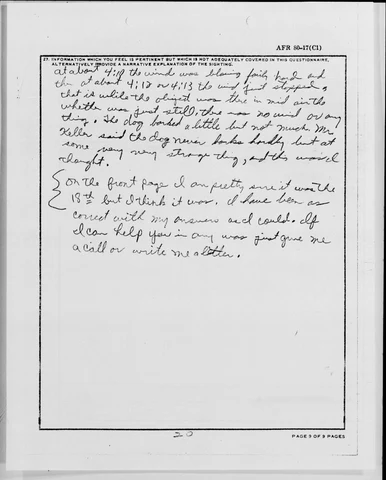 AFR 80-17(C1)
27. INFORMATION WHICH YOU FEEL IS PERTINENT BUT WHICH IS NOT ADEQUATELY COVERED IN THIS QUESTIONNAIRE,
ALTERNATIVELY PROVIDE A NARRATIVE EXPLANATION OF THE SIGHTING.
at about 4:10 the wind was blowing fairly hard and
then at about 4:12 or 4:13 the wind just stopped,
that is while the object was there in mid air the
whether was just still, there was no wind or any
thing. The dog barked a little but not much. Mr.
Keller said the dog never barks hardly but at
some very very strange thing, and this was I
thought.
On the front page I am pretty sure it was the
18th but I think it was. I have been as
correct with my answers as I could. If
I can help you in any was just give me
a call or write me a letter.
20
PAGE 5 OF 5 PAGES